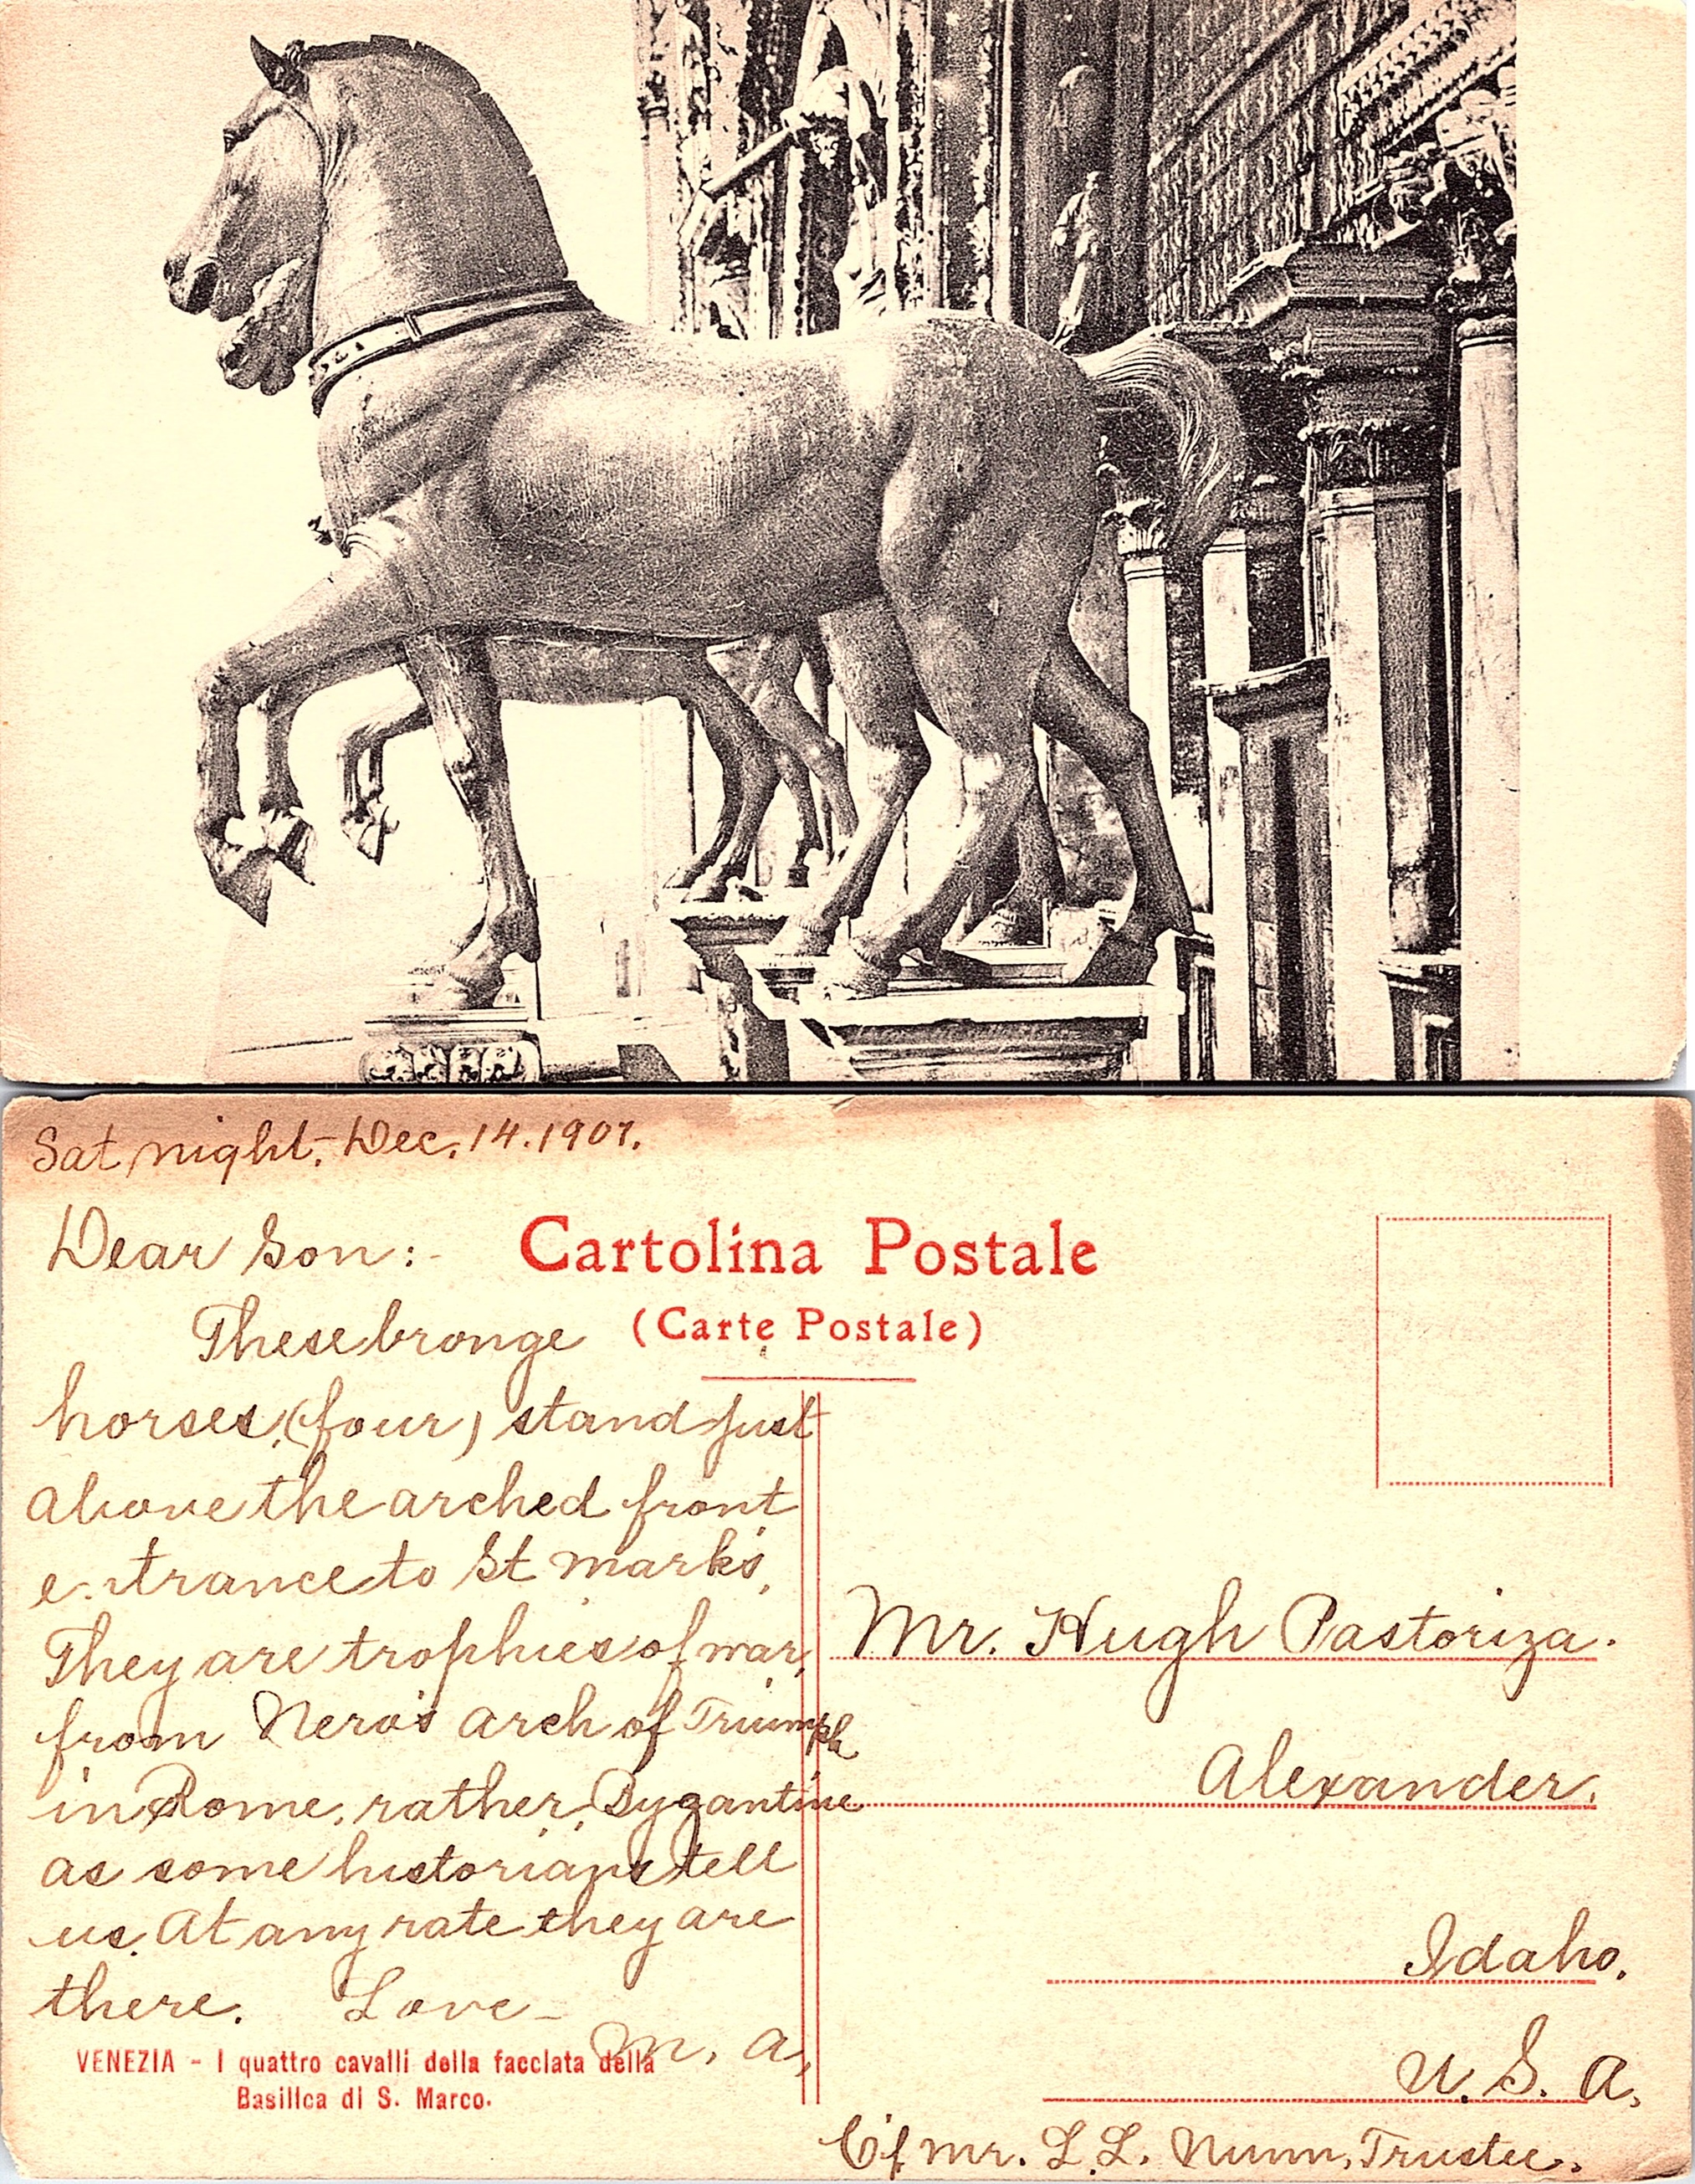 Sat night, Dec. 14. 1907.
Dear Son:-
Cartolina Postale
(Carte Postale)
These bronze
horses, (four) stand just
above the arched front
entrance to St Mark's.
They are trophies of war,
from Nero's arch of Triumph
in Rome, rather, Byzantine
as some historians tell
us. At any rate they are
there. Love -
M. A.
VENEZIA - I quattro cavalli della facciata della
Basilica di S. Marco.
Mr. Hugh Pastoriza.
Alexander.
Idaho.
U. S. A.
C/f Mr. L. L. Nunn, Trustee.